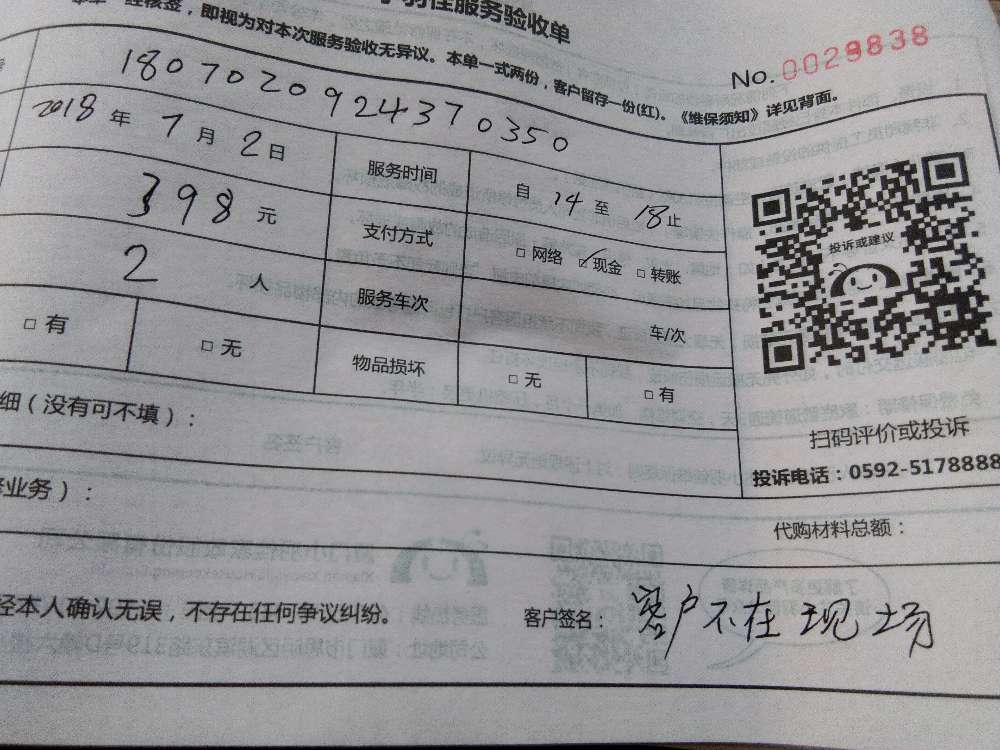 服务验收单
核签，即视为对本次服务验收无异议。本单一式两份，客户留存一份(红)。《维保须知》详见背面。
No. 0029838
1807020924370350
2018 年 7 月 2 日 服务时间 自 14 至 18 止
398 元 支付方式 □ 网络 ☑ 现金 □ 转账
2 人 服务车次 车/次
□ 有 □ 无 物品损坏 □ 无 □ 有
投诉或建议
扫码评价或投诉
投诉电话：0592-5178888
细（没有可不填）：
业务）：
代购材料总额：
经本人确认无误，不存在任何争议纠纷。 客户签名： 客户不在现场